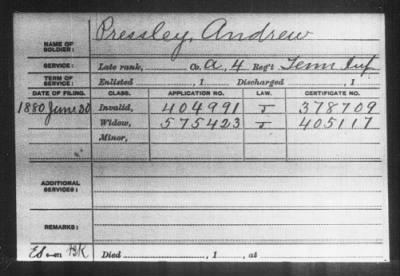 NAME OF SOLDIER: Pressley, Andrew
SERVICE: Late rank, Co. A, 4 Reg't Tenn Inf
TERM OF SERVICE: Enlisted , 1 Discharged , 1
DATE OF FILING. CLASS. APPLICATION NO. LAW. CERTIFICATE NO.
1880 June 30 Invalid, 404991 J 378709
Widow, 575423 J 405117
Minor,
ADDITIONAL SERVICES:
REMARKS:
Died , 1 , at